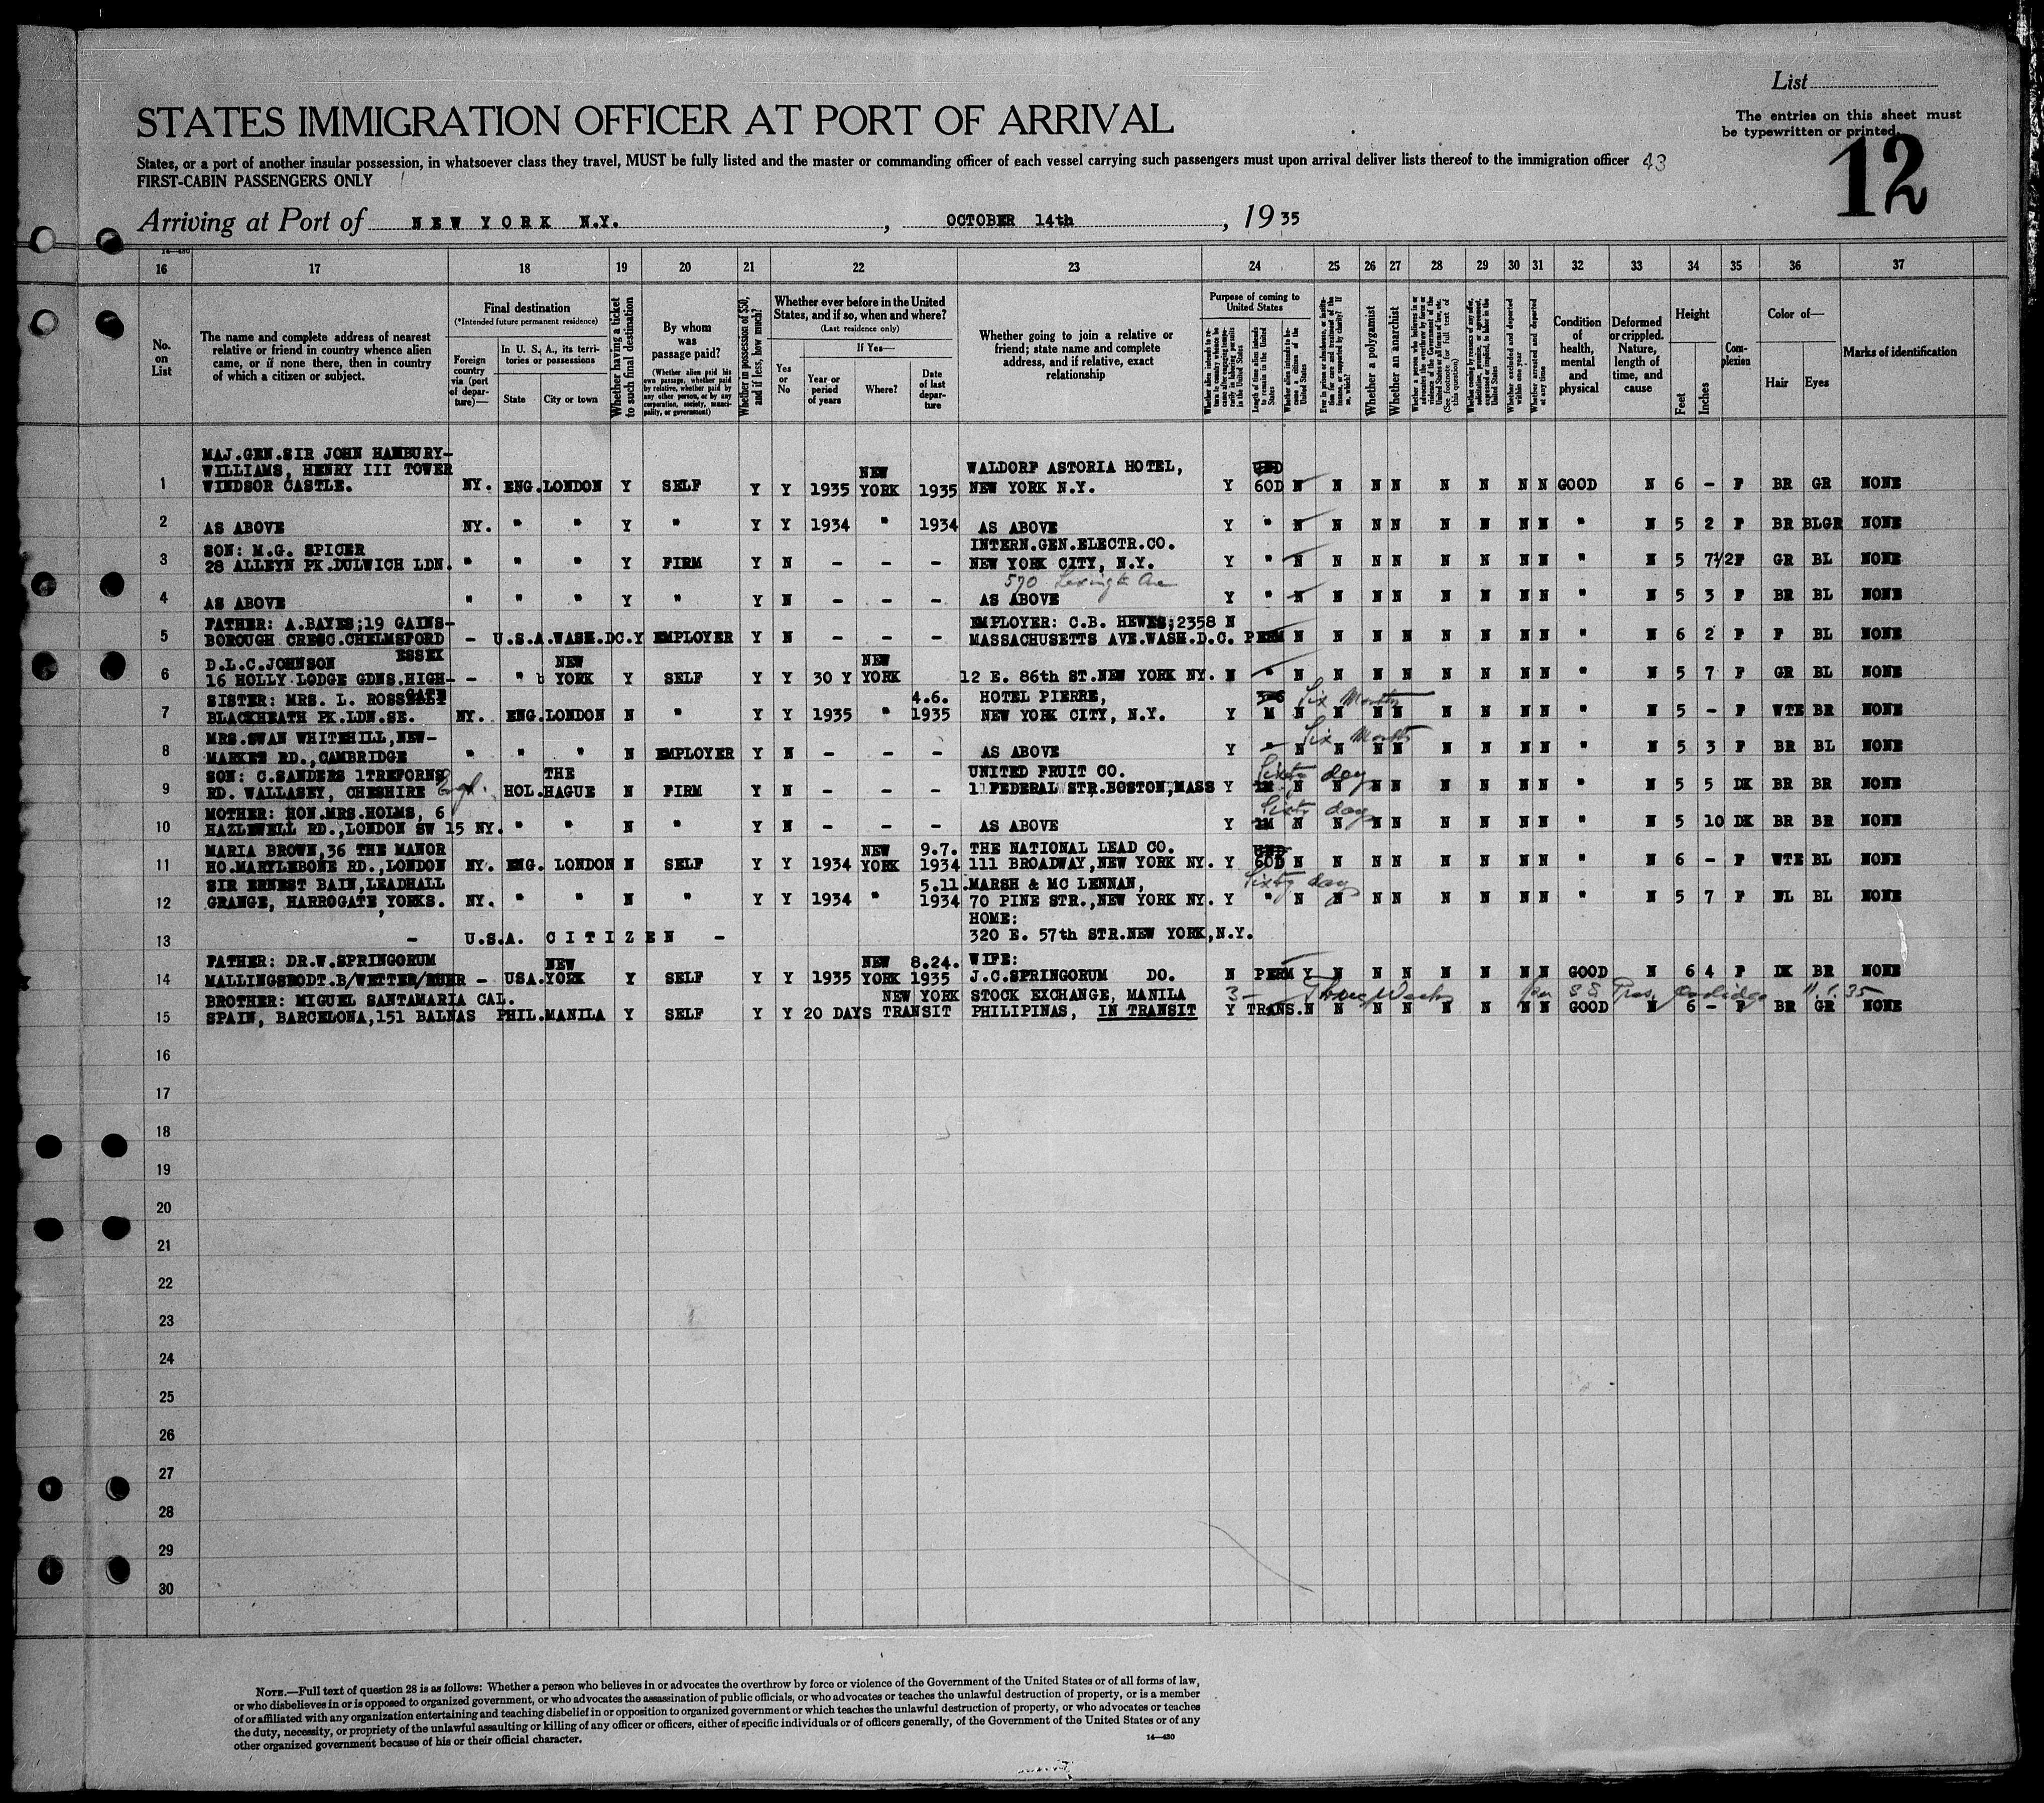 List
The entries on this sheet must
be typewritten or printed.
STATES IMMIGRATION OFFICER AT PORT OF ARRIVAL
12
States, or a port of another insular possession, in whatsoever class they travel, MUST be fully listed and the master or commanding officer of each vessel carrying such passengers must upon arrival deliver lists thereof to the immigration officer 43
FIRST-CABIN PASSENGERS ONLY
Arriving at Port of NEW YORK N.Y., OCTOBER 14th, 1935
16 17 18 19 20 21 22 23 24 25 26 27 28 29 30 31 32 33 34 35 36 37
No. on List
The name and complete address of nearest relative or friend in country whence alien came, or if none there, then in country of which a citizen or subject.
Final destination
(*Intended future permanent residence)
Foreign country via (port of departure)—
In U. S. A., its territories or possessions
State City or town
Whether having a ticket to such final destination
By whom was passage paid?
(Whether alien paid his own passage, whether paid by relative, whether paid by any other person, or by any corporation, society, municipality, or government)
Whether in possession of $50, and if less, how much?
Whether ever before in the United States, and if so, when and where?
(Last residence only)
If Yes—
Yes or No
Year or period of years
Where?
Date of last departure
Whether going to join a relative or friend; state name and complete address, and if relative, exact relationship
Purpose of coming to United States
Length of time alien intends to remain in the United States
Whether alien intends to become a citizen of the United States
Whether a polygamist
Whether an anarchist
(See footnote for full text of this question)
Whether excluded and deported within one year
Whether arrested and deported at any time
Condition of health, mental and physical
Deformed or crippled. Nature, length of time, and cause
Height
Feet Inches
Complexion
Color of—
Hair Eyes
Marks of identification
MAJ.GEN.SIR JOHN HANBURY-
WILLIAMS, HENRY III TOWER NEW WALDORF ASTORIA HOTEL,
1 WINDSOR CASTLE. NY. ENG. LONDON Y SELF Y Y 1935 YORK 1935 NEW YORK N.Y. Y 60D N N N N N N N N GOOD N 6 - F BR GR NONE
2 AS ABOVE NY. " " Y " Y Y 1934 " 1934 AS ABOVE Y " N N N N N N N N " N 5 2 F BR BLGR NONE
SON: M.G. SPICER INTERN.GEN.ELECTR.CO.
3 28 ALLEYN PK.DULWICH LDN. " " " Y FIRM Y N - - - NEW YORK CITY, N.Y. Y " N N N N N N N N " N 5 7 1/2 F GR BL NONE
570 Lexington Ave
4 AS ABOVE " " " Y " Y N - - - AS ABOVE Y " N N N N N N N N " N 5 3 F BR BL NONE
FATHER: A.BAYES;19 GAINS- EMPLOYER: C.B. HEWES;2358 N
5 BOROUGH CRESC.CHELMSFORD - U.S.A.WASH.DC.Y EMPLOYER Y N - - - MASSACHUSETTS AVE.WASH.D.C. PERM N N N N N N N N " N 6 2 F F BL NONE
ESSEX
D.L.C.JOHNSON NEW NEW
6 16 HOLLY LODGE GDNS.HIGH- - " YORK Y SELF Y Y 30 Y YORK 12 E. 86th ST.NEW YORK NY. N " N N N N N N N N " N 5 7 F GR BL NONE
GATE
SISTER: MRS. L. ROSS 4.6. HOTEL PIERRE, Six Months
7 BLACKHEATH PK.LDN.SE. NY. ENG. LONDON N " Y Y 1935 " 1935 NEW YORK CITY, N.Y. Y M N N N N N N N N " N 5 - F WTE BR NONE
MRS.SWAN WHITEHILL,NEW- Six Months
8 MARKET RD.,CAMBRIDGE " " " N EMPLOYER Y N - - - AS ABOVE Y " N N N N N N N N " N 5 3 F BR BL NONE
SON: C.SANDERS 1TREFORNS THE UNITED FRUIT CO. Sixty days
9 RD. WALLASEY, CHESHIRE Engl. HOL. HAGUE N FIRM Y N - - - 1 FEDERAL STR.BOSTON,MASS Y 1M N N N N N N N N " N 5 5 DK BR BR NONE
MOTHER: HON.MRS.HOLMS, 6 Sixty days
10 HAZLEWELL RD.,LONDON SW 15 NY. " " N " Y N - - - AS ABOVE Y 1M N N N N N N N N " N 5 10 DK BR BR NONE
MARIA BROWN,36 THE MANOR NEW 9.7. THE NATIONAL LEAD CO.
11 HO.MARYLEBONE RD.,LONDON NY. ENG. LONDON N SELF Y Y 1934 YORK 1934 111 BROADWAY,NEW YORK NY. Y 60D N N N N N N N N " N 6 - F WTE BL NONE
SIR ERNEST BAIN,LEADHALL 5.11. MARSH & MC LENNAN, Sixty days
12 GRANGE, HARROGATE YORKS. NY. " " N " Y Y 1934 " 1934 70 PINE STR.,NEW YORK NY. Y " N N N N N N N N " N 5 7 F BL BL NONE
HOME:
13 - U.S.A. CITIZEN - 320 E. 57th STR.NEW YORK,N.Y.
FATHER: DR.W.SPRINGORUM NEW NEW 8.24. WIFE:
14 MALLINGSRODT.B/WETTER/RUHR - USA. YORK Y SELF Y Y 1935 YORK 1935 J.C.SPRINGORUM DO. N PERM Y N N N N N N N GOOD N 6 4 F DK BR NONE
BROTHER: MIGUEL SANTAMARIA CAL. NEW YORK STOCK EXCHANGE, MANILA 3- Three Weeks per SS Pres. Coolidge 11.1.35
15 SPAIN, BARCELONA,151 BALNAS PHIL. MANILA Y SELF Y Y 20 DAYS TRANSIT PHILIPINAS, IN TRANSIT Y TRANS. N N N N N N N N GOOD N 6 - F BR GR NONE
16
17
18
19
20
21
22
23
24
25
26
27
28
29
30
NOTE.—Full text of question 28 is as follows: Whether a person who believes in or advocates the overthrow by force or violence of the Government of the United States or of all forms of law,
or who disbelieves in or is opposed to organized government, or who advocates the assassination of public officials, or who advocates or teaches the unlawful destruction of property, or is a member
of or affiliated with any organization entertaining and teaching disbelief in or opposition to organized government or which teaches the unlawful destruction of property, or who advocates or teaches
the duty, necessity, or propriety of the unlawful assaulting or killing of any officer or officers, either of specific individuals or of officers generally, of the Government of the United States or of any
other organized government because of his or their official character.
14—430